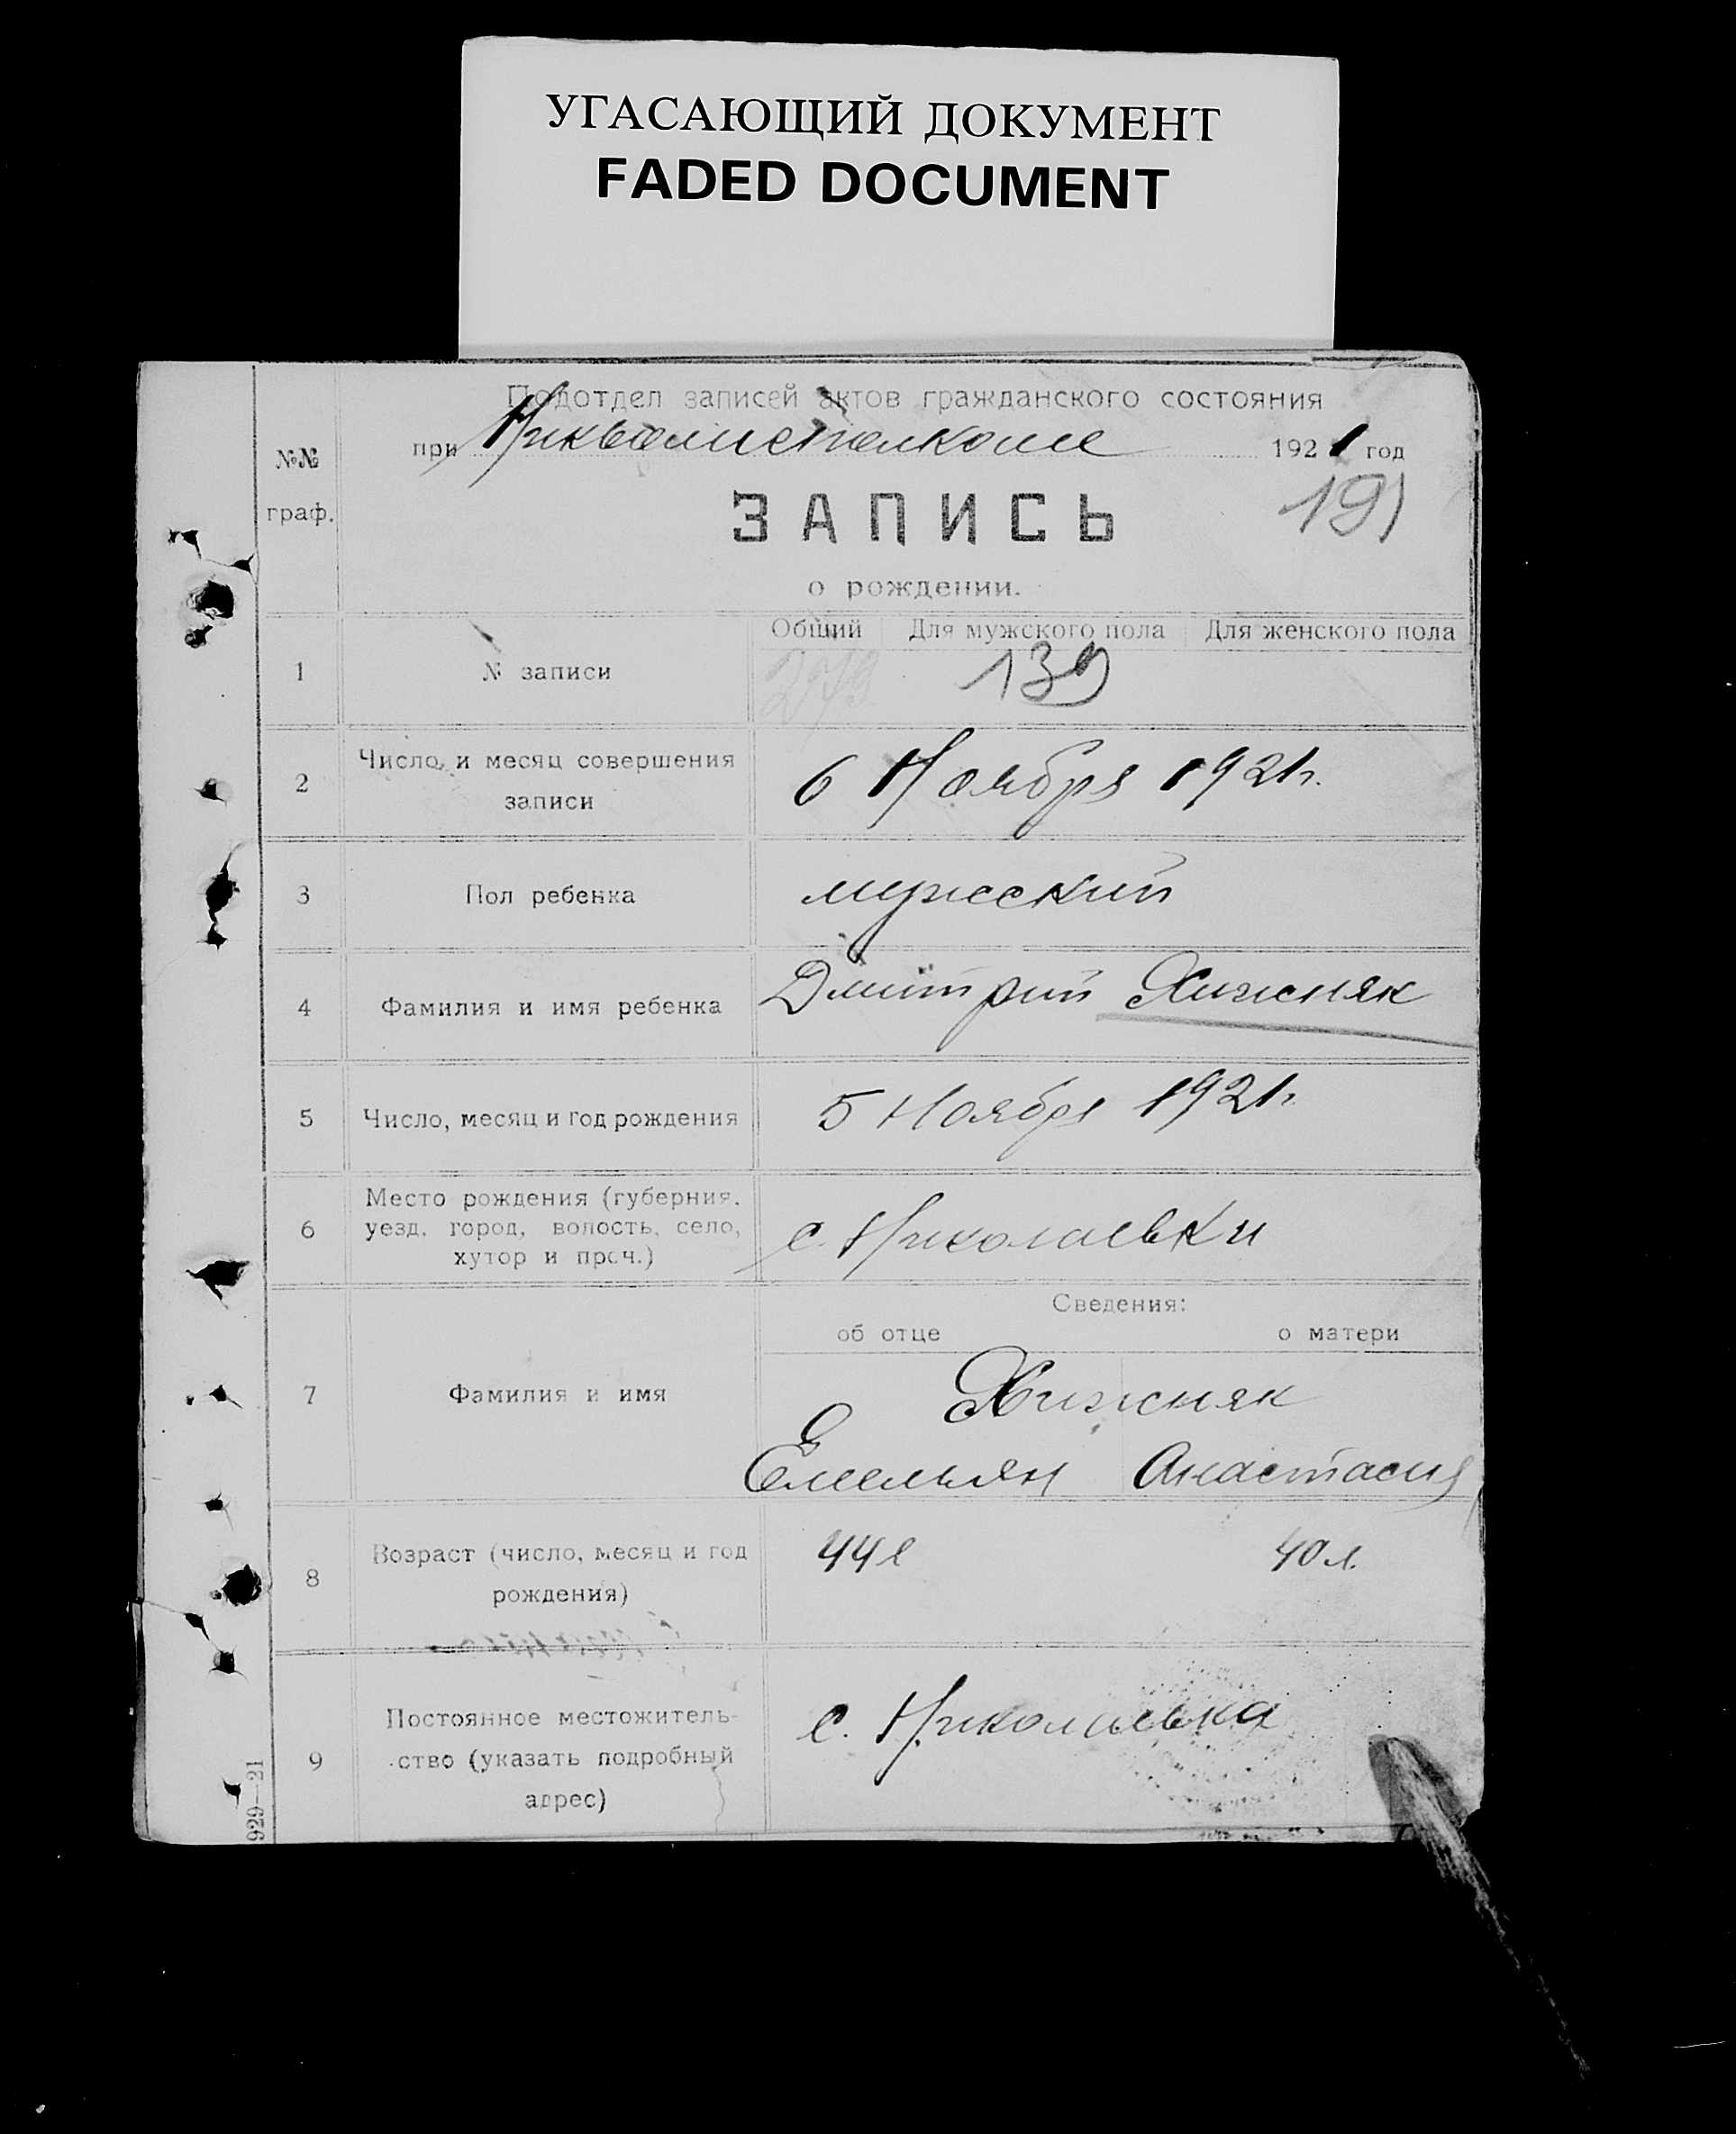 УГАСАЮЩИЙ ДОКУМЕНТ
FADED DOCUMENT
Подотдел записей актов гражданского состояния
№№
граф.
при Никволисполкоме 1921 год
191
ЗАПИСЬ
о рождении.
Общий Для мужского пола Для женского пола
1 № записи 139
2 Число и месяц совершения
записи
6 Ноября 1921г.
3 Пол ребенка мужеский
4 Фамилия и имя ребенка Дмитрий Хижняк
5 Число, месяц и год рождения 5 Ноября 1921г.
6 Место рождения (губерния,
уезд, город, волость, село,
хутор и проч.)
с. Николаевки
Сведения:
об отце о матери
7 Фамилия и имя Хижняк
Емельян Анастасия
8 Возраст (число, месяц и год
рождения)
44л 40л.
9 Постоянное местожитель-
ство (указать подробный
адрес)
с. Николаевка
929—21